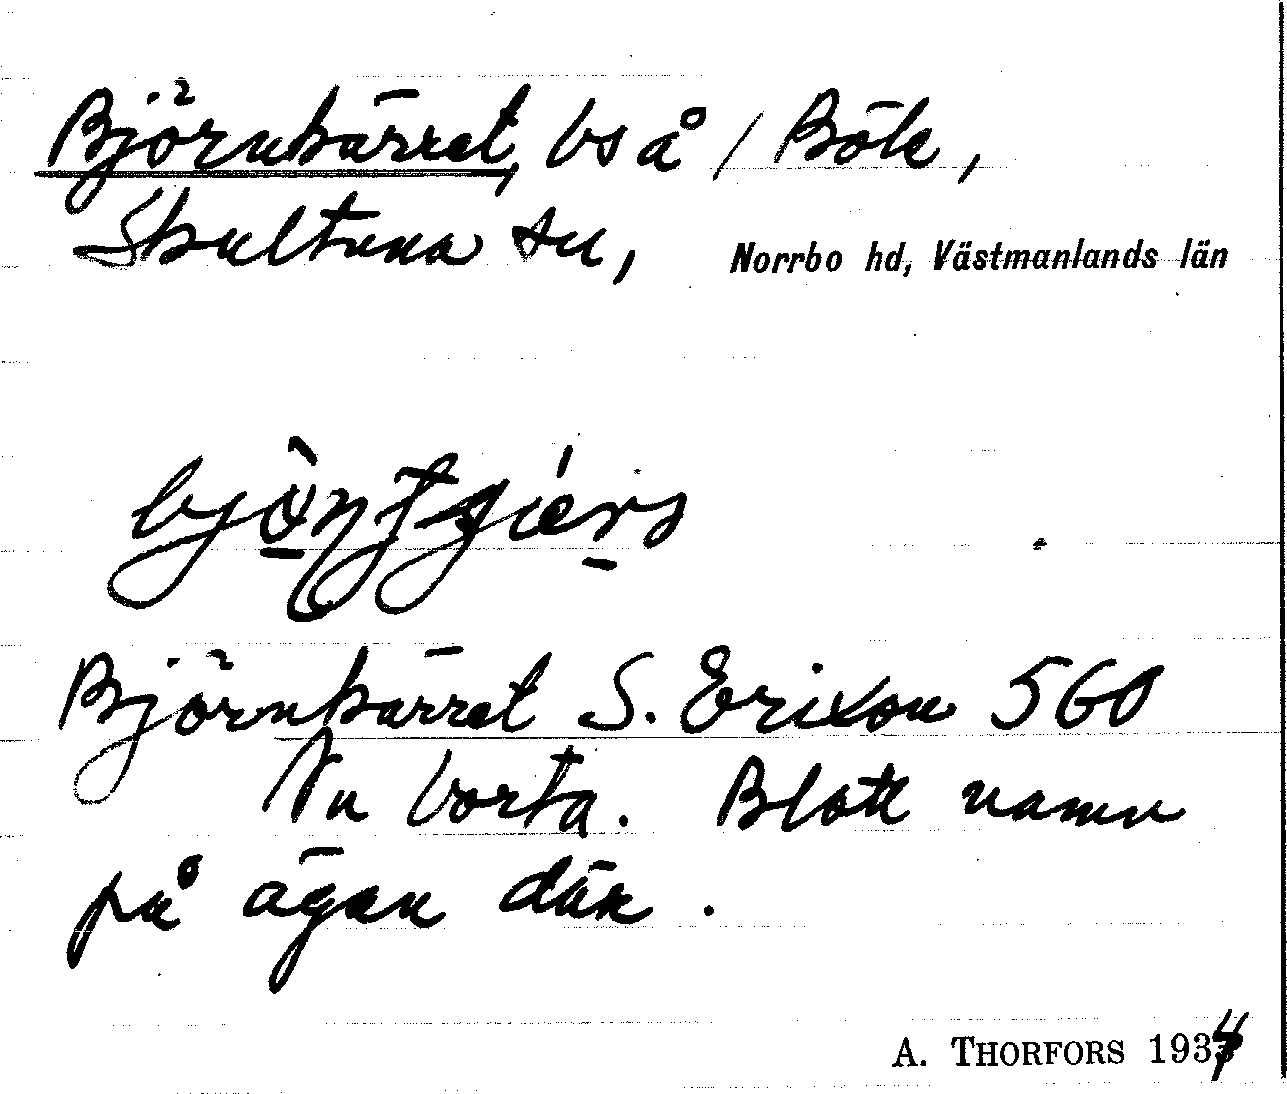 Björnkärret, bs å / Bök,
Skultuna sn, Norrbo hd, Västmanlands län
Björnkärret S. Erixon 560
Nu borta. Blott namn
på ägan där.
A. THORFORS 1934